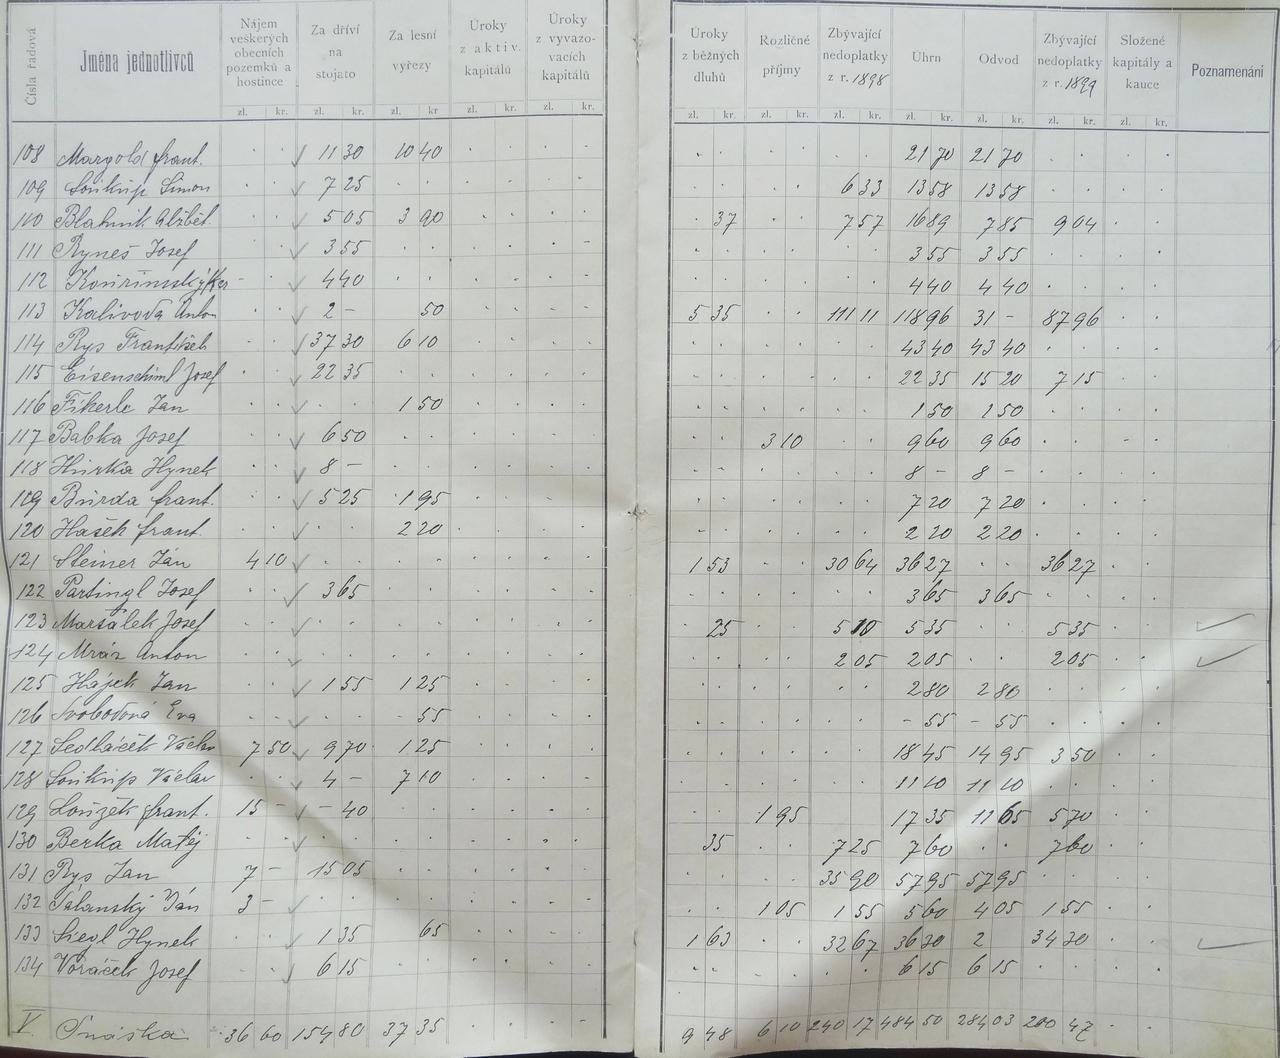 Čísla řadová | Jména jednotlivců | Nájem veškerých obecních pozemků a hostince | Za dříví na stojato | Za lesní výřezy | Úroky z aktiv. kapitálů | Úroky z vyvazovacích kapitálů | Úroky z běžných dluhů | Rozličné příjmy | Zbývající nedoplatky z r. 1898 | Úhrn | Odvod | Zbývající nedoplatky z r. 1899 | Složené kapitály a kauce | Poznamenání
zl. kr. zl. kr. zl. kr. zl. kr. zl. kr. zl. kr. zl. kr. zl. kr. zl. kr. zl. kr. zl. kr. zl. kr.
108 Margold frant. 11 30 10 40 21 70 21 70
109 Soukup Šimon 7 25 6 33 13 58 13 58
110 Blahník Alžbět. 5 05 3 90 37 7 57 16 89 7 85 9 04
111 Ryneš Josef 3 55 3 55 3 55
112 4 40 4 40 4 40
113 Kalivoda Anton 2 – 50 5 35 111 11 118 96 31 – 87 96
114 Rys František 37 30 6 10 43 40 43 40
115 Eisenschiml Josef 22 35 22 35 15 20 7 15
116 Fikerle Jan 1 50 1 50 1 50
117 Babka Josef 6 50 3 10 9 60 9 60
118 Hůrka Hynek 8 – 8 – 8 –
119 Burda frant. 5 25 1 95 7 20 7 20
120 Hašek frant. 2 20 2 20 2 20
121 Steiner Ján 4 10 1 53 30 64 36 27 36 27
122 Partingl Josef 3 65 3 65 3 65
123 Maršálek Josef 25 5 10 5 35 5 35
124 Mráz Anton 2 05 2 05 2 05
125 Hájek Jan 1 55 1 25 2 80 2 80
126 Svobodová Eva – 55 – 55 – 55
127 Sedláček Václav 7 50 9 70 1 25 18 45 14 95 3 50
128 Soukup Václav 4 – 7 10 11 10 11 10
129 Loužek frant. 15 – – 40 1 95 17 35 11 65 5 70
130 Berka Matěj 35 7 25 7 60 7 60
131 Rys Jan 7 – 15 05 35 90 57 95 57 95
132 Šalanský Ján 3 – 1 05 1 55 5 60 4 05 1 55
133 Siegl Hynek 1 35 65 1 63 32 67 36 30 2 34 30
134 Voráček Josef 6 15 6 15 6 15
V. Snáška 36 60 154 80 37 35 9 48 6 10 240 17 484 50 284 03 200 47